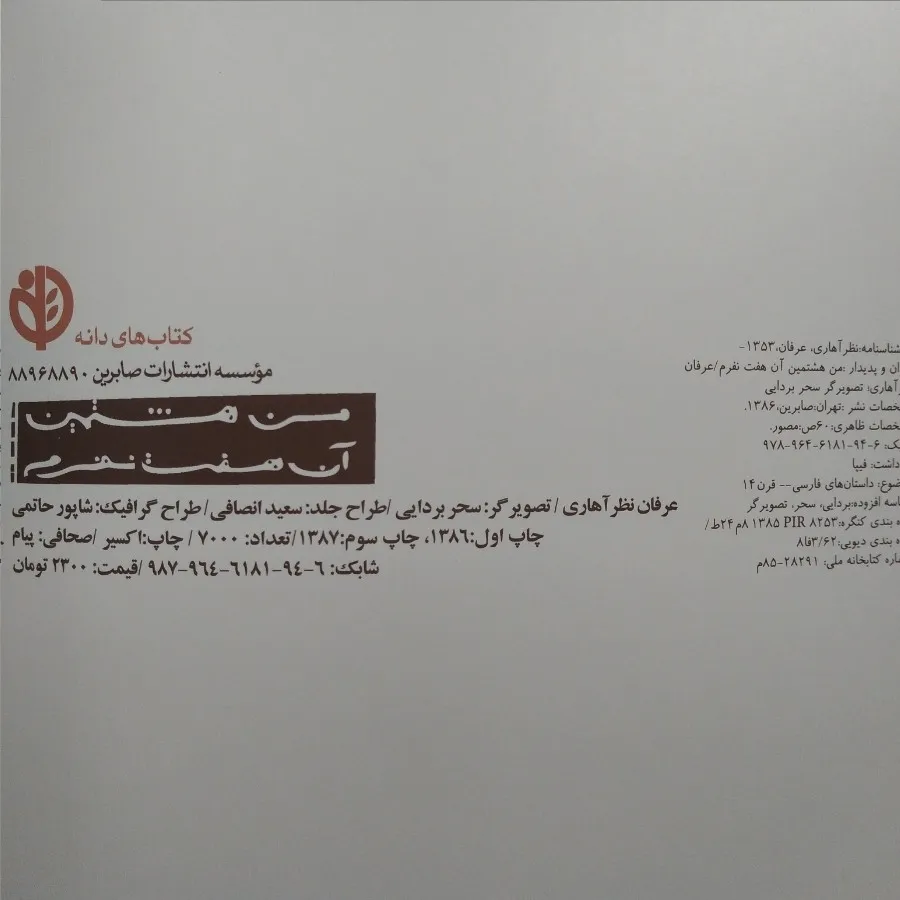 کتاب‌های دانه
مؤسسه انتشارات صابرین ۸۸۹۶۸۸۹۰
من هشتمین
آن هفت نفرم
عرفان نظرآهاری / تصویرگر: سحر بردایی /طراح جلد: سعید انصافی/ طراح گرافیک: شاپور حاتمی
چاپ اول:۱۳۸۶، چاپ سوم:۱۳۸۷/تعداد: ۷۰۰۰ / چاپ:اکسیر /صحافی: پیام
شابک: ۶-۹٤-۶۱۸۱-۹۶٤-۹۸۷ /قیمت: ۲۳۰۰ تومان
شناسنامه:نظرآهاری، عرفان،۱۳۵۳-
و پدیدار :من هشتمین آن هفت نفرم/عرفان
آهاری: تصویرگر سحر بردایی
نشر :تهران:صابرین،۱۳۸۶.
ظاهری:۶۰ص:مصور.
۹۷۸-۹۶۴-۶۱۸۱-۹۴-۶
فیپا
داستان‌های فارسی-- قرن ۱۴
افزوده:بردایی، سحر، تصویرگر
بندی کنگره:۸۲۵۳ PIR ۱۳۸۵ ۸م۲۴ط/
بندی دیویی:۳/۶۲فا۸
کتابخانه ملی: ۲۸۲۹۱-۸۵م